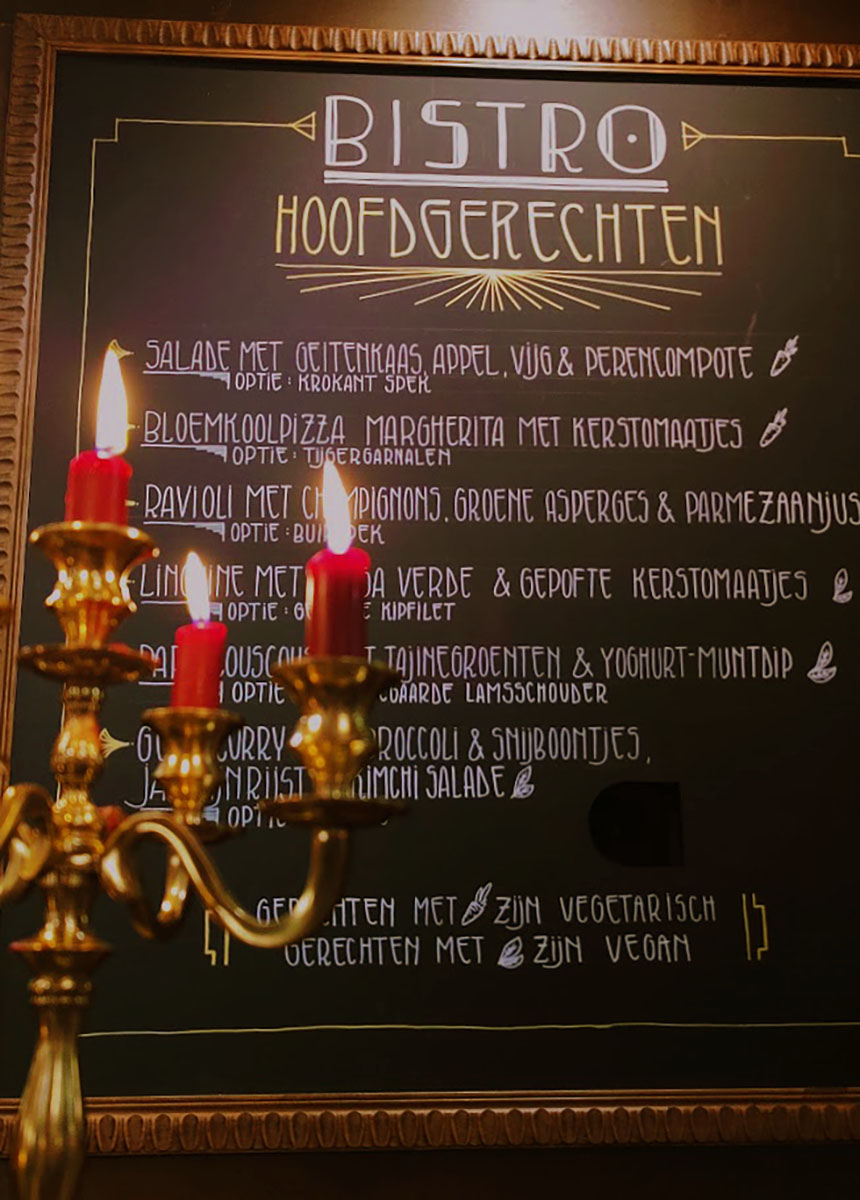 BISTRO
HOOFDGERECHTEN
SALADE MET GEITENKAAS, APPEL, VIJG & PERENCOMPOTE
OPTIE: KROKANT SPEK
BLOEMKOOLPIZZA MARGHERITA MET KERSTOMAATJES
OPTIE: TIJGERGARNALEN
RAVIOLI MET CHAMPIGNONS, GROENE ASPERGES & PARMEZAANJUS
OPTIE:
MET VERDE & GEPOFTE KERSTOMAATJES
OPTIE: KIPFILET
TAJINEGROENTEN & YOGHURT-MUNTDIP
OPTIE LAMSSCHOUDER
CURRY BROCCOLI & SNIJBOONTJES,
KIMCHI SALADE
GERECHTEN MET ZIJN VEGETARISCH
GERECHTEN MET ZIJN VEGAN